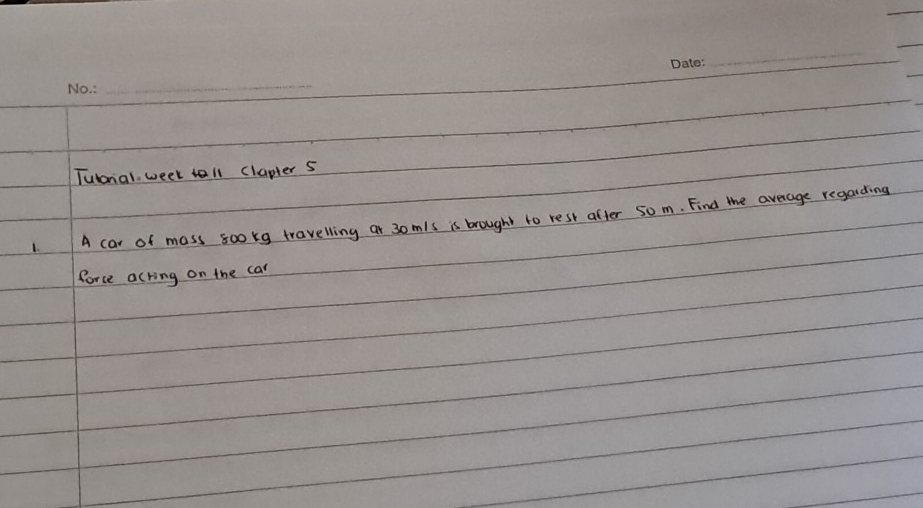 No.:
Date:
Tutorial week 11 Clapter 5
1. A car of mass 800 kg travelling at 30 m/s is brought to rest after 50 m. Find the average regarding
force acting on the car